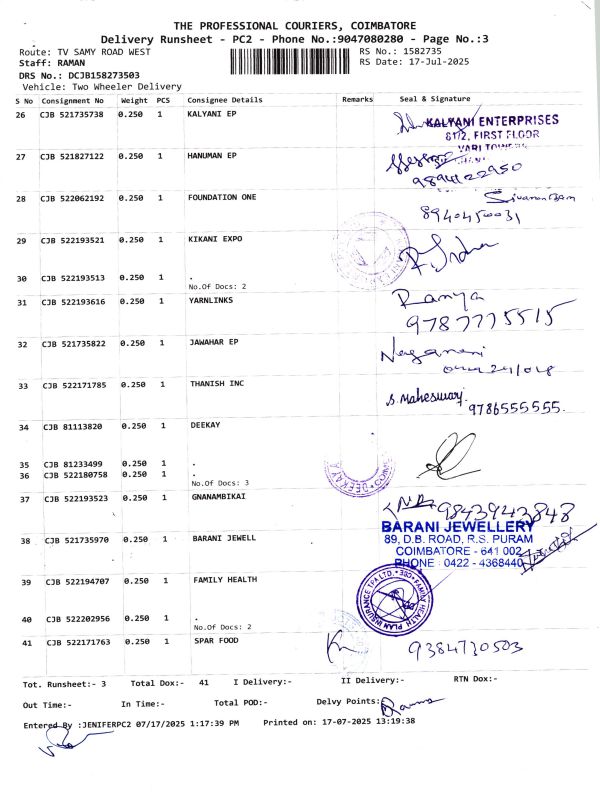 THE PROFESSIONAL COURIERS, COIMBATORE
Delivery Runsheet - PC2 - Phone No.:9047080280 - Page No.:3
Route: TV SAMY ROAD WEST
RS No.: 1582735
Staff: RAMAN
RS Date: 17-Jul-2025
DRS No.: DCJB158273503
Vehicle: Two Wheeler Delivery
S No Consignment No Weight PCS Consignee Details Remarks Seal & Signature
26 CJB 521735738 0.250 1 KALYANI EP
KALYANI ENTERPRISES
81/2, FIRST FLOOR
27 CJB 521827122 0.250 1 HANUMAN EP
9894122950
28 CJB 522062192 0.250 1 FOUNDATION ONE
8940450031
29 CJB 522193521 0.250 1 KIKANI EXPO
30 CJB 522193513 0.250 1 .
No.Of Docs: 2
31 CJB 522193616 0.250 1 YARNLINKS
Ramya
9787775515
32 CJB 521735822 0.250 1 JAWAHAR EP
33 CJB 522171785 0.250 1 THANISH INC
S. Maheswari
9786555555.
34 CJB 81113820 0.250 1 DEEKAY
35 CJB 81233499 0.250 1 .
36 CJB 522180758 0.250 1 .
No.Of Docs: 3
DEEKAY
37 CJB 522193523 0.250 1 GNANAMBIKAI
9843943848
38 CJB 521735970 0.250 1 BARANI JEWELL
BARANI JEWELLERY
89, D.B. ROAD, R.S. PURAM
COIMBATORE - 641 002
PHONE : 0422 - 4368440
39 CJB 522194707 0.250 1 FAMILY HEALTH
FAMILY HEALTH PLAN INSURANCE TPA LTD.
40 CJB 522202956 0.250 1 .
No.Of Docs: 2
41 CJB 522171763 0.250 1 SPAR FOOD
9384730503
Tot. Runsheet:- 3 Total Dox:- 41 I Delivery:- II Delivery:- RTN Dox:-
Out Time:- In Time:- Total POD:- Delvy Points:
Entered By :JENIFERPC2 07/17/2025 1:17:39 PM Printed on: 17-07-2025 13:19:38